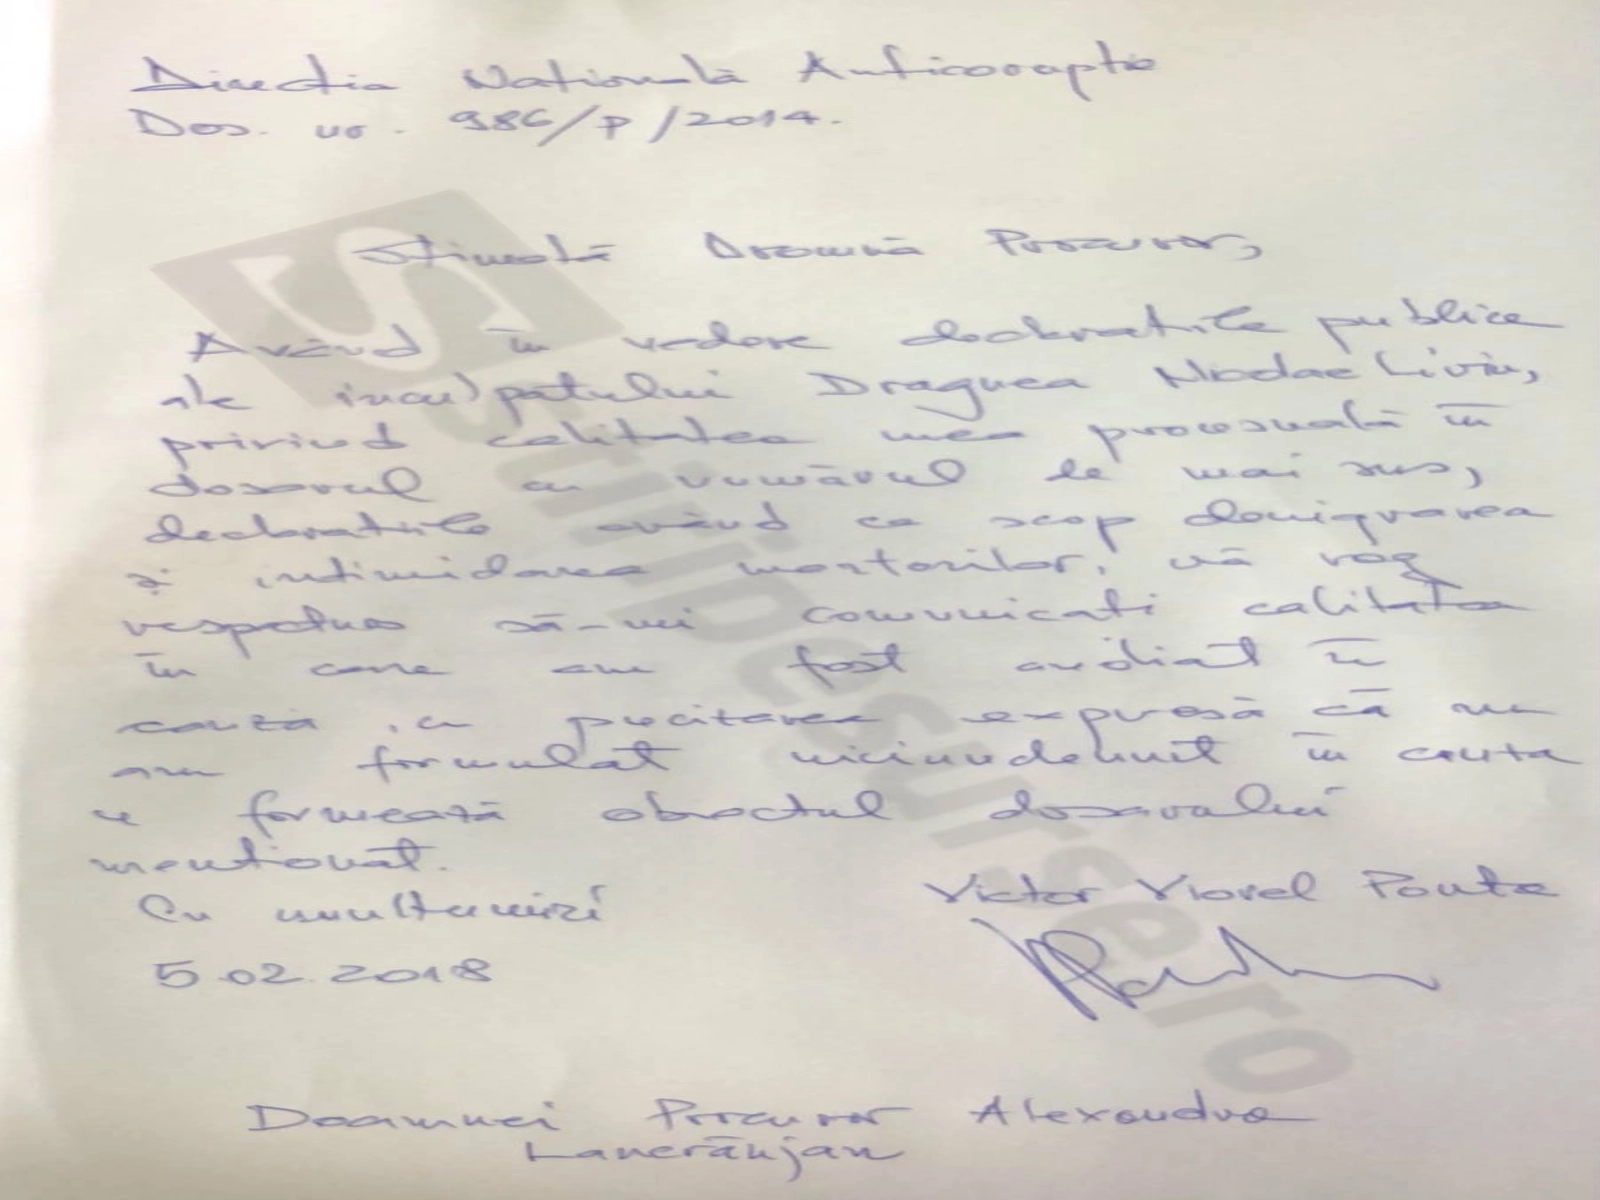 Direcția Națională Anticorupție
Dos. nr. 986/P/2014.
Stimată Doamnă Procuror,
Având în vedere declarațiile publice
ale inculpatului Dragnea Nicolae Liviu,
privind calitatea mea procesuală în
dosarul cu numărul de mai sus,
declarațiile având ca scop denigrarea
și intimidarea martorilor, vă rog
respectuos să-mi comunicați calitatea
în care am fost audiat în
cauză, cu precizarea expresă că nu
am formulat niciun denunț în cauza
ce formează obiectul dosarului
menționat.
Cu mulțumiri
Victor Viorel Ponta
5.02.2018
Doamnei Procuror Alexandra
Lăncrănjan
stiripesurse.ro